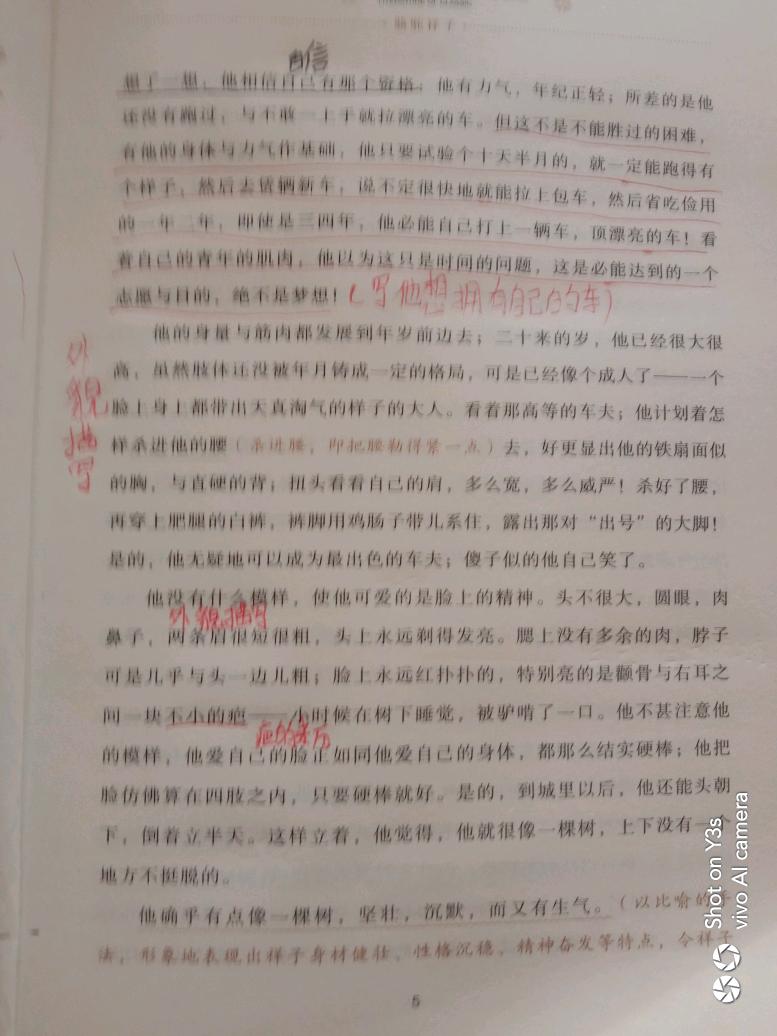 骆驼祥子
自信
想了一想，他相信自己有那个资格：他有力气，年纪正轻；所差的是他
还没有跑过，与不敢一上手就拉漂亮的车。但这不是不能胜过的困难，
有他的身体与力气作基础，他只要试验个十天半月的，就一定能跑得有
个样子，然后去赁辆新车，说不定很快地就能拉上包车，然后省吃俭用
的一年二年，即使是三四年，他必能自己打上一辆车，顶漂亮的车！看
着自己的青年的肌肉，他以为这只是时间的问题，这是必能达到的一个
志愿与目的，绝不是梦想！（写他想拥有自己的车）
他的身量与筋肉都发展到年岁前边去；二十来的岁，他已经很大很
高，虽然肢体还没被年月铸成一定的格局，可是已经像个成人了——一个
脸上身上都带出天真淘气的样子的大人。看着那高等的车夫；他计划着怎
样杀进他的腰（杀进腰，即把腰勒得紧一点）去，好更显出他的铁扇面似
的胸，与直硬的背；扭头看看自己的肩，多么宽，多么威严！杀好了腰，
再穿上肥腿的白裤，裤脚用鸡肠子带儿系住，露出那对“出号”的大脚！
是的，他无疑地可以成为最出色的车夫；傻子似的他自己笑了。
外貌描写
他没有什么模样，使他可爱的是脸上的精神。头不很大，圆眼，肉
外貌描写
鼻子，两条眉很短很粗，头上永远剃得发亮。腮上没有多余的肉，脖子
可是几乎与头一边儿粗；脸上永远红扑扑的，特别亮的是颧骨与右耳之
间一块不小的疤——小时候在树下睡觉，被驴啃了一口。他不甚注意他
疤的来历
的模样，他爱自己的脸正如同他爱自己的身体，都那么结实硬棒；他把
脸仿佛算在四肢之内，只要硬棒就好。是的，到城里以后，他还能头朝
下，倒着立半天。这样立着，他觉得，他就很像一棵树，上下没有一个
地方不挺脱的。
他确乎有点像一棵树，坚壮，沉默，而又有生气。（以比喻的
法，形象地表现出祥子身材健壮、性格沉稳、精神奋发等特点，令祥子
5
Shot on Y3s
vivo AI camera